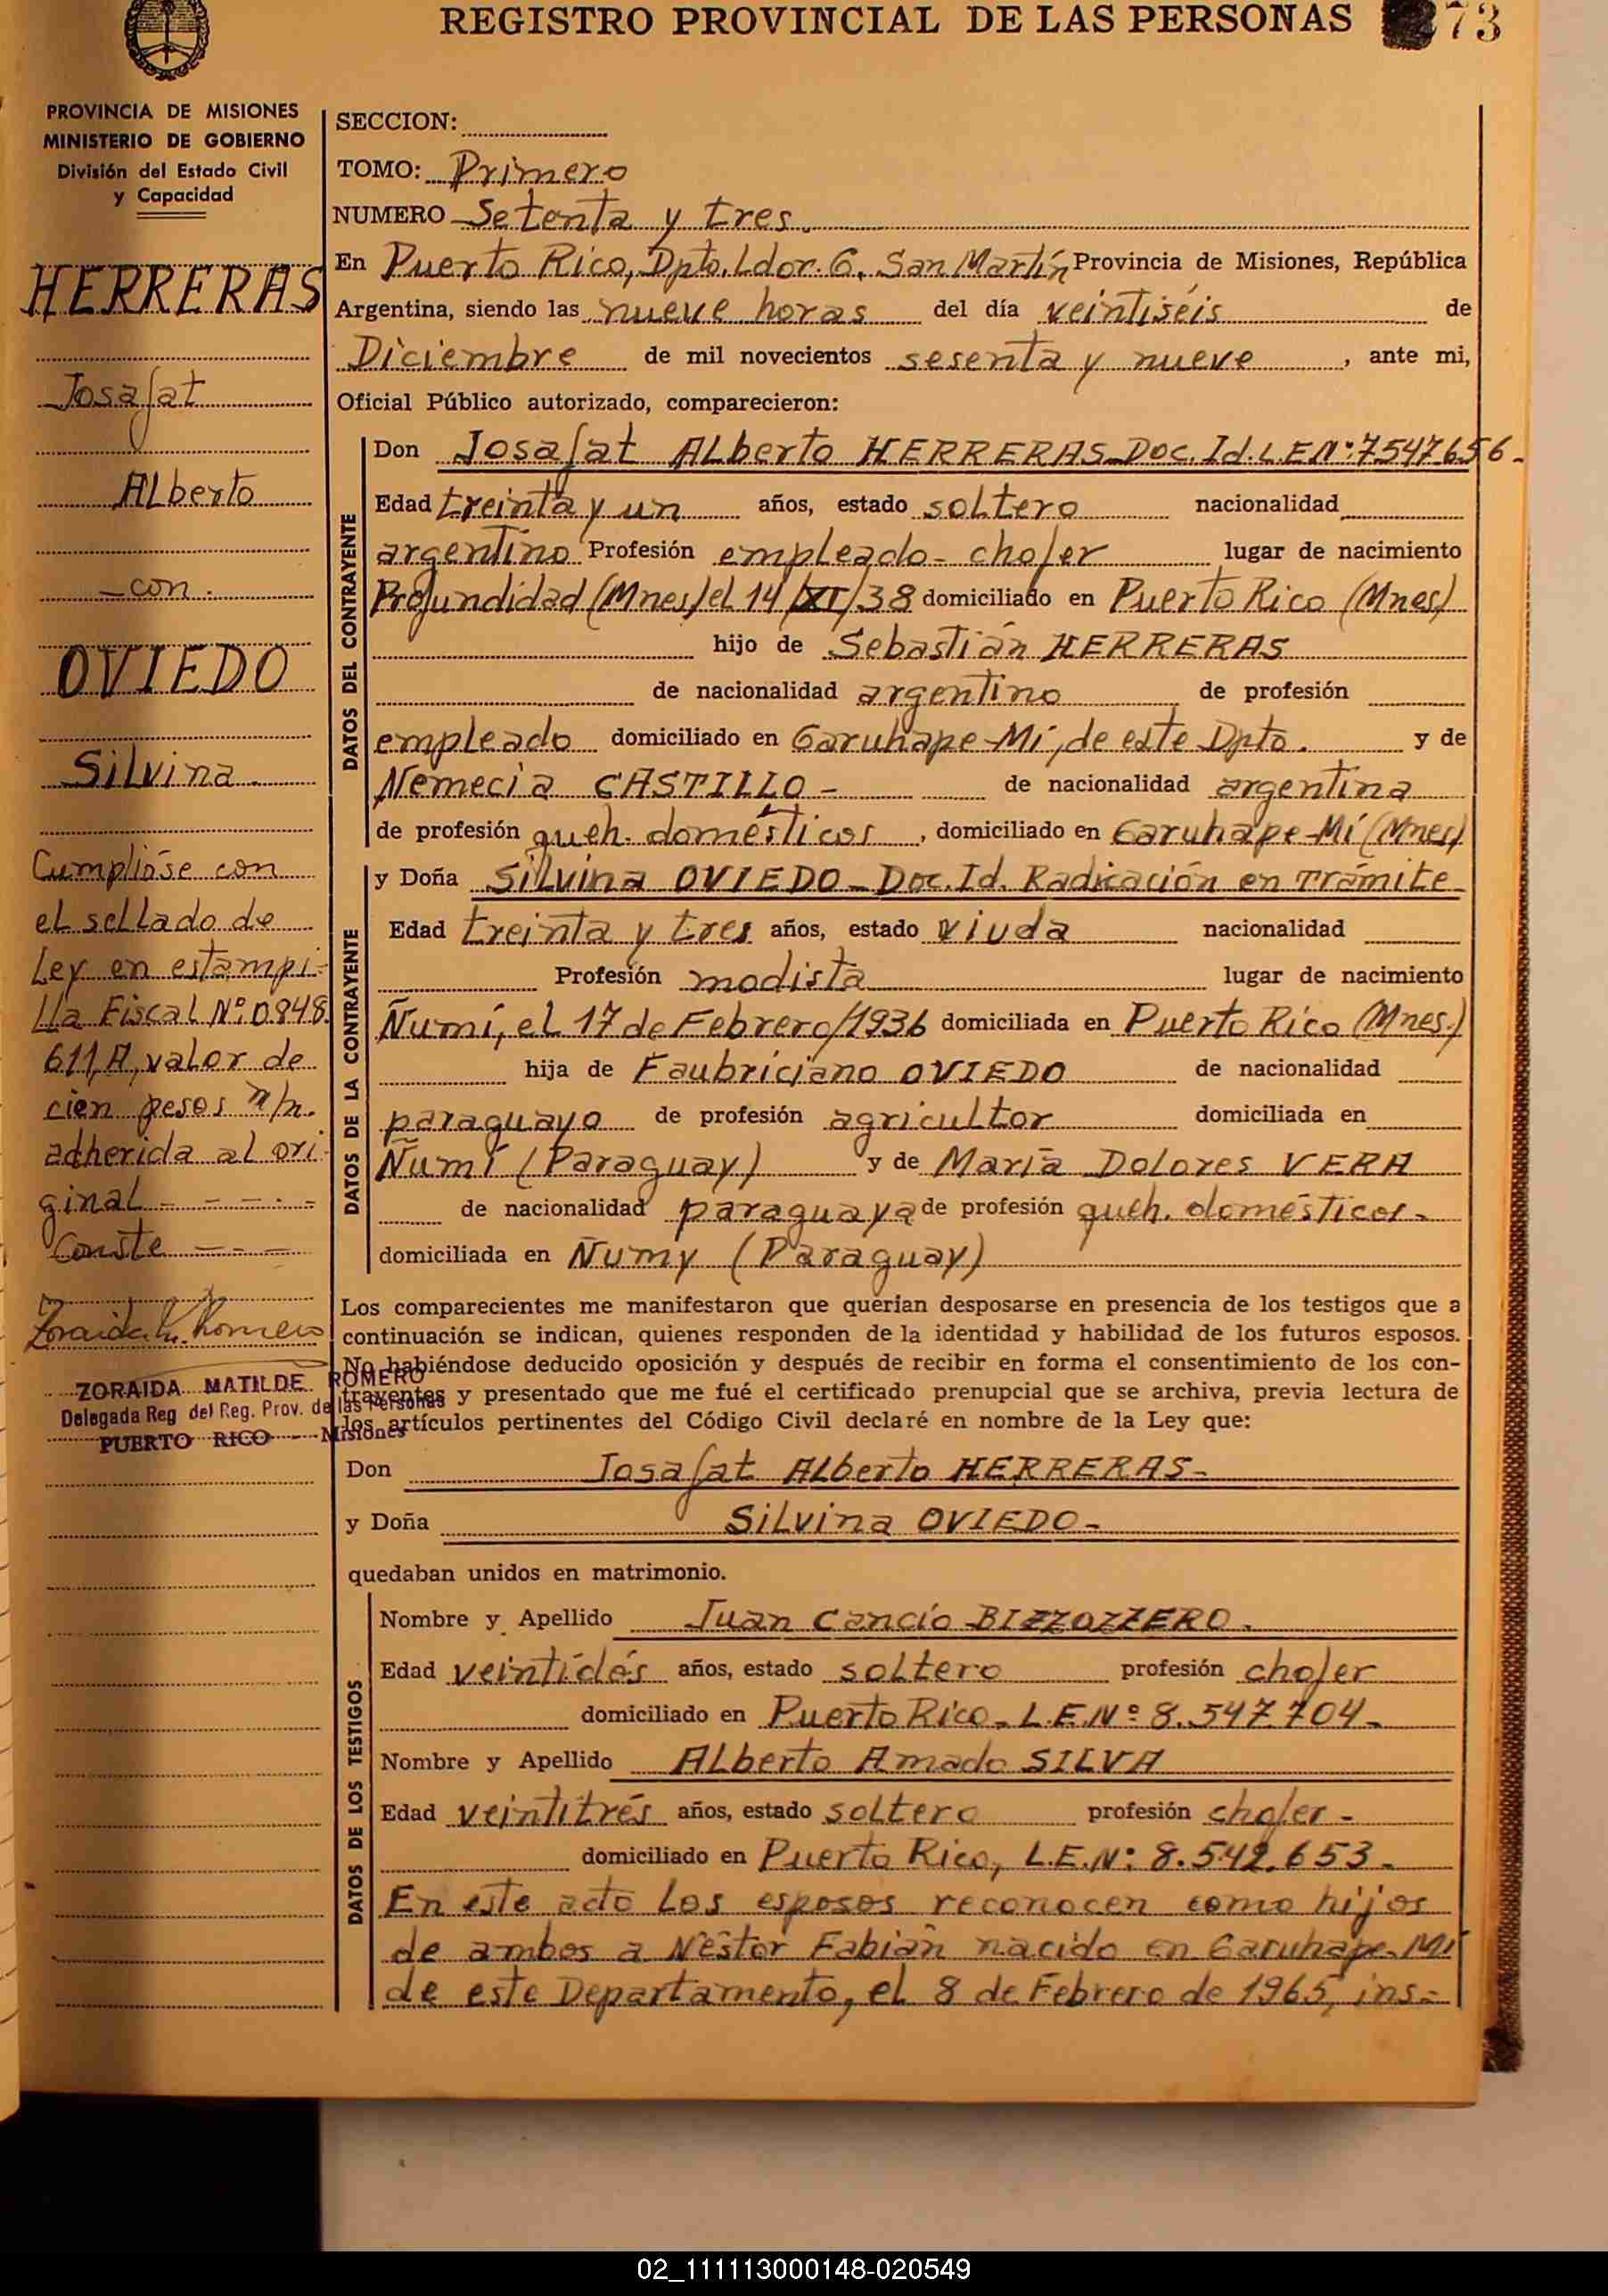 REGISTRO PROVINCIAL DE LAS PERSONAS
73
PROVINCIA DE MISIONES
MINISTERIO DE GOBIERNO
División del Estado Civil
y Capacidad
HERRERAS
Josafat
Alberto
-con.
OVIEDO
Silvina.
Cumplióse con
el sellado de
Ley en estampi-
lla Fiscal Nº:0848
611,A, valor de
cien pesos m/n.
adherida al ori-
ginal - - - - -
Conste - - -
ZORAIDA MATILDE ROMERO
Delegada Reg del Reg. Prov. de las Personas
PUERTO RICO - Misiones
SECCION:
TOMO: Primero
NUMERO Setenta y tres.
En Puerto Rico, Dpto. Ldor. G. San Martín Provincia de Misiones, República
Argentina, siendo las nueve horas del día veintiséis de
Diciembre de mil novecientos sesenta y nueve, ante mi,
Oficial Público autorizado, comparecieron:
DATOS DEL CONTRAYENTE
Don Josafat Alberto HERRERAS-Doc. Id. L.E.N°:7547.656.-
Edad treinta y un años, estado soltero nacionalidad
argentino Profesión empleado-chofer lugar de nacimiento
Profundidad (Mnes) el 14/XI/38 domiciliado en Puerto Rico (Mnes)
hijo de Sebastián HERRERAS
de nacionalidad argentino de profesión
empleado domiciliado en Garuhape-Mí, de este Dpto. y de
Nemecia CASTILLO - de nacionalidad argentina
de profesión queh. domésticos, domiciliado en Garuhape-Mí (Mnes)
DATOS DE LA CONTRAYENTE
y Doña Silvina OVIEDO-Doc. Id. Radicación en Trámite
Edad treinta y tres años, estado viuda nacionalidad
Profesión modista lugar de nacimiento
Ñumí, el 17 de Febrero/1936 domiciliada en Puerto Rico (Mnes.)
hija de Faubriciano OVIEDO de nacionalidad
paraguayo de profesión agricultor domiciliada en
Ñumí (Paraguay) y de María Dolores VERA
de nacionalidad paraguaya de profesión queh. domésticos.-
domiciliada en Ñumy (Paraguay)
Los comparecientes me manifestaron que querían desposarse en presencia de los testigos que a
continuación se indican, quienes responden de la identidad y habilidad de los futuros esposos.
No habiéndose deducido oposición y después de recibir en forma el consentimiento de los con-
trayentes y presentado que me fué el certificado prenupcial que se archiva, previa lectura de
los artículos pertinentes del Código Civil declaré en nombre de la Ley que:
Don Josafat Alberto HERRERAS-
y Doña Silvina OVIEDO-
quedaban unidos en matrimonio.
DATOS DE LOS TESTIGOS
Nombre y Apellido Juan Cancio BIZZOZZERO.
Edad veintidós años, estado soltero profesión chofer
domiciliado en Puerto Rico- L.E.Nº 8.547.704-
Nombre y Apellido Alberto Amado SILVA
Edad veintitrés años, estado soltero profesión chofer-
domiciliado en Puerto Rico, L.E.N°: 8.542.653-
En este acto los esposos reconocen como hijos
de ambos a Néstor Fabián nacido en Garuhape-Mí
de este Departamento, el 8 de Febrero de 1965, ins-
02_111113000148-020549